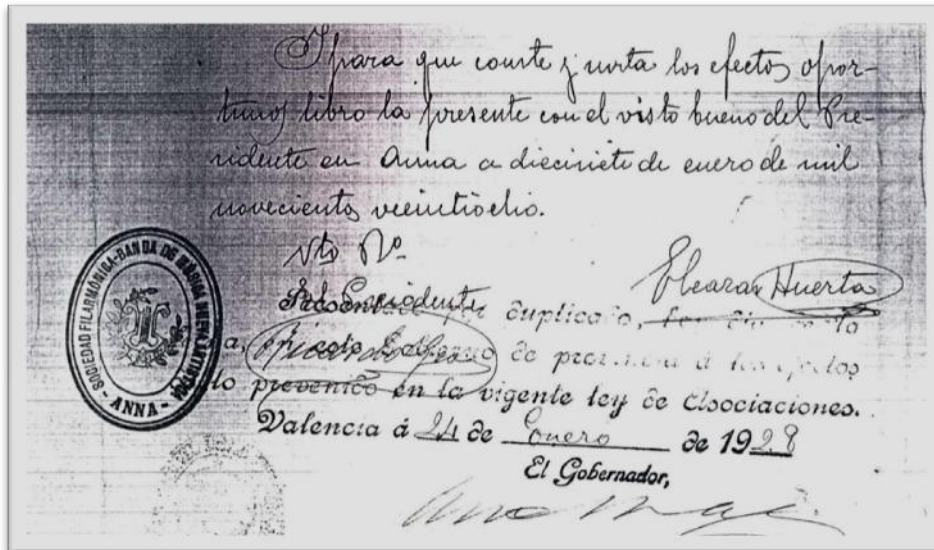 Y para que conste y surta los efectos opor-
tunos libro la presente con el visto bueno del Pre-
sidente en Anna a diecisiete de enero de mil
novecientos veintiocho.
Vto Bno
El Presidente Eleazar Huerta
Presentado duplicado,
a, en este Gobierno de provincia á los efectos
lo prevenido en la vigente ley de Asociaciones.
Valencia á 24 de Enero de 1928
El Gobernador,
SOCIEDAD FILARMÓNICA-BANDA DE MÚSICA NUEVA ARTÍSTICA
- ANNA -